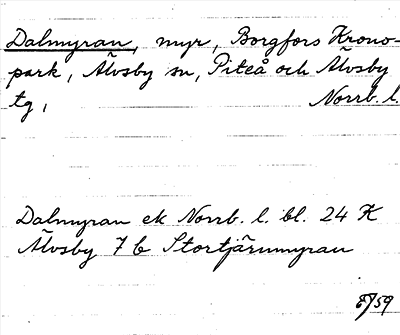 Dalmyran, myr, Borgfors Krono-
park, Älvsby sn, Piteå och Älvsby
tg, Norrb. l.
Dalmyran ek Norrb. l. bl. 24 K
Älvsby 7 b Stortjärnmyran
8/59